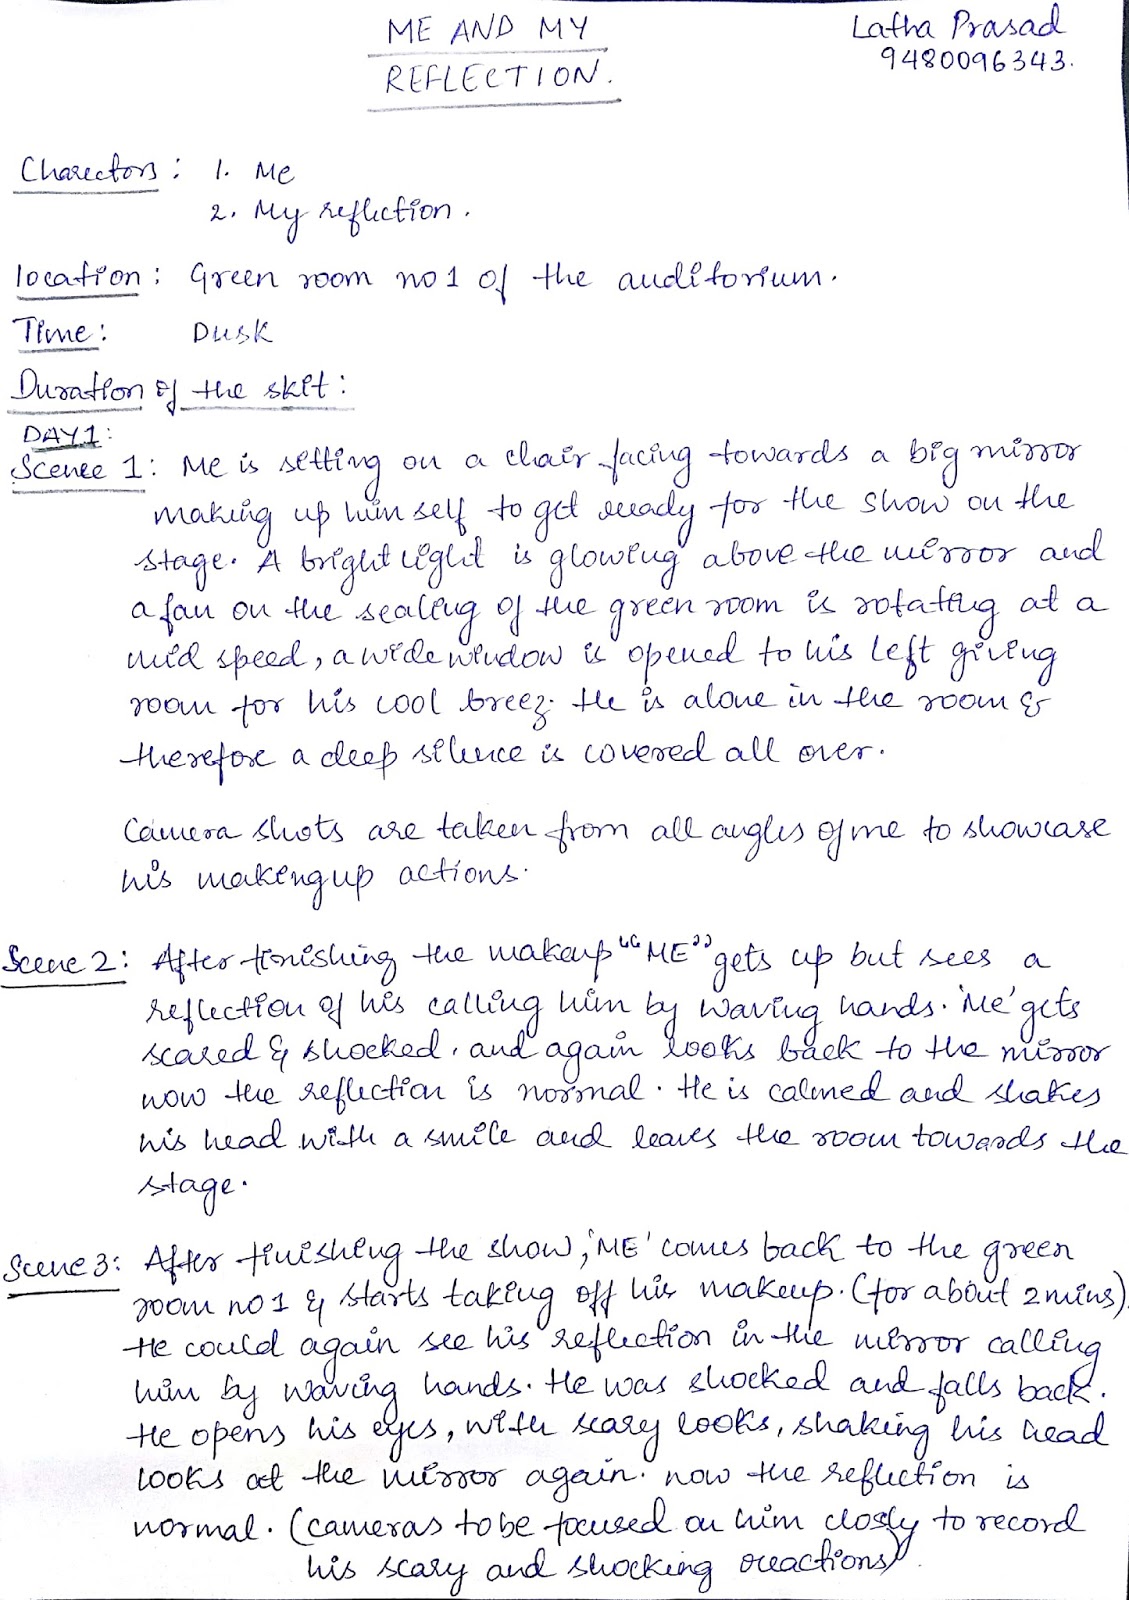 ME AND MY
REFLECTION.
Latha Prasad
9480096343.
Charectors: 1. Me
2. My reflection.
location: Green room no 1 of the auditorium.
Time: Dusk
Duration of the skit:
DAY1:
Scenee 1: Me is setting on a chair facing towards a big mirror
making up him self to get ready for the show on the
stage. A bright light is glowing above the mirror and
a fan on the sealing of the green room is rotating at a
mid speed, a wide window is opened to his left giving
room for his cool breez. He is alone in the room &
therefore a deep silence is covered all over.
Camera shots are taken from all angles of me to showcase
his makeng up actions.
Scene 2: After finishing the makeup "ME" gets up but sees a
reflection of his calling him by waving hands. 'Me' gets
scared & shocked. and again looks back to the mirror
now the reflection is normal. He is calmed and shakes
his head with a smile and leaves the room towards the
stage.
Scene 3: After finishing the show, 'ME' comes back to the green
room no 1 & starts taking off his makeup. (for about 2 mins).
He could again see his reflection in the mirror calling
him by waving hands. He was shocked and falls back.
He opens his eyes, with scary looks, shaking his head
looks at the mirror again. now the reflection is
normal. (cameras to be focused on him closly to record
his scary and shocking reactions).